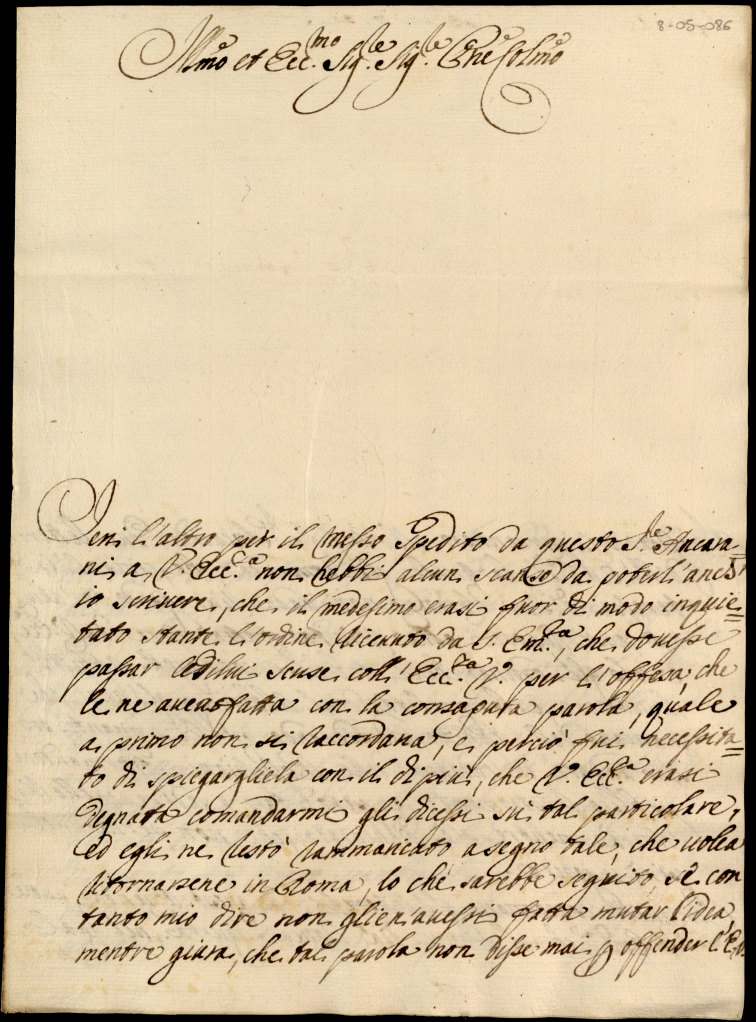 8-05-086
Ill.mo et Ecc.mo Sig.re Sig.re P.rone Col.mo
Jeri l'altro per il messo spedito da questo S.re Ancara=
ni a V. Ecc.a non hebbi alcun scanso da poterl'anc
io scrivere, che il medesimo erasi fuor di modo inquie=
tato stante l'ordine ricevuto da S. Em.za, che dovesse
passar le di lui scuse coll' Ecc.za V. per l'offesa, che
le ne aveva fatta con la consaputa parola, quale
a primo non si raccordava, e perciò fui necessita=
to di spiegargliela con il di più, che V. Ecc.a erasi
degnata comandarmi gli dicessi sù tal particolare,
ed egli ne restò rammaricato a segno tale, che volea
ritornarsene in Roma, lo che sarebbe seguito, se con
tanto mio dire non glien'avessi fatta mutar l'idea,
mentre giura, che tal parola non disse mai p offender l'E.V.